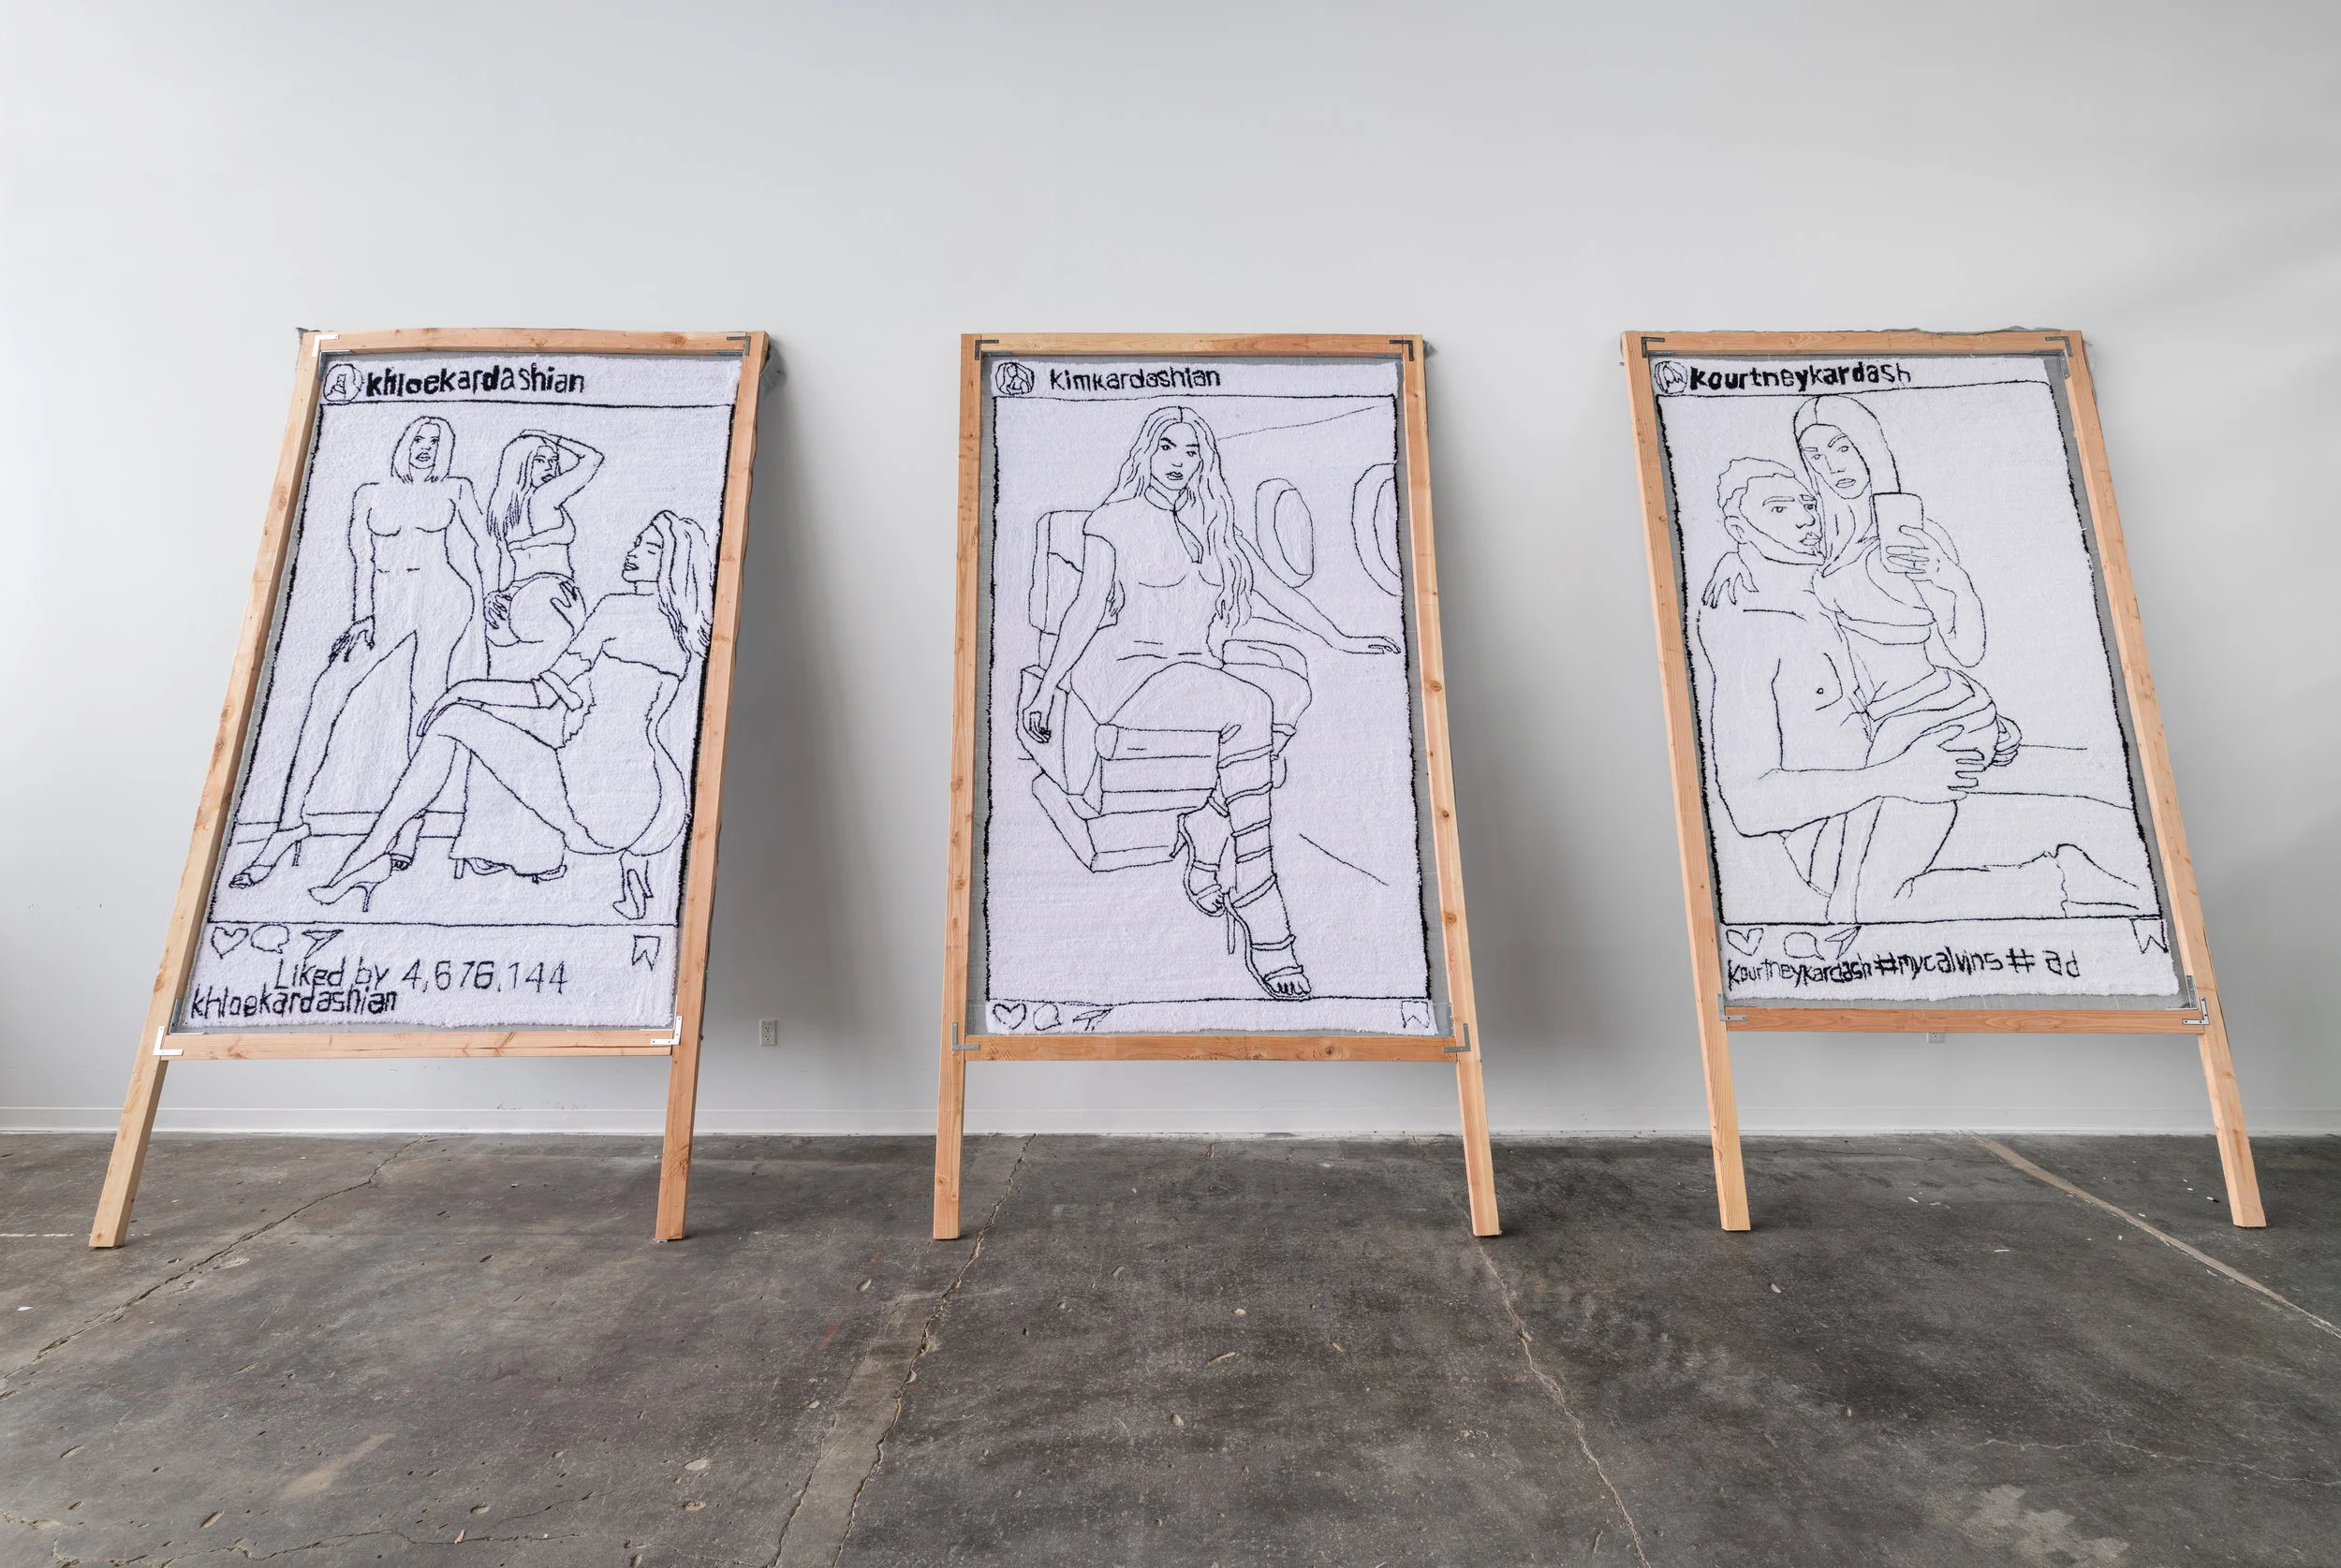 khloekardashian
Liked by 4,676,144
khloekardashian
kimkardashian
kourtneykardash
kourtneykardash #mycalvins # ad